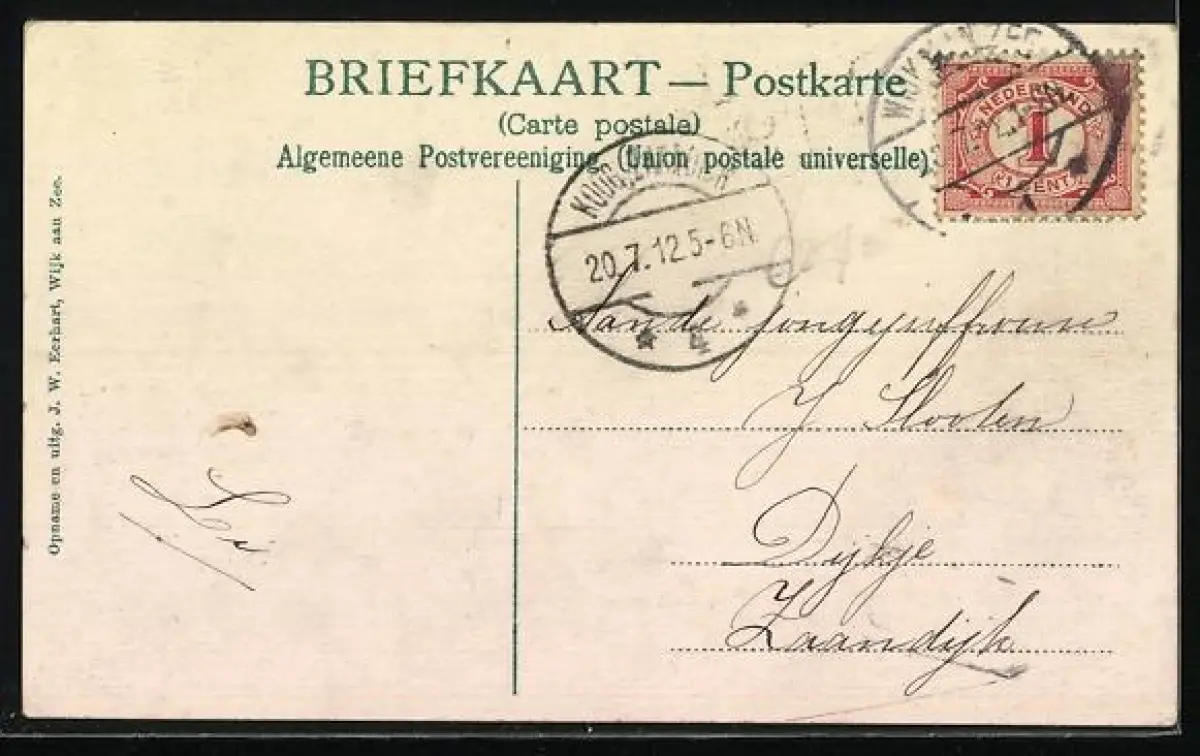 BRIEFKAART — Postkarte
(Carte postale)
Algemeene Postvereeniging. (Union postale universelle)
WIJK AAN ZEE
NEDERLAND
1
CENT
KOOG-ZAANDIJK
20.7.12 5-6N
4
Aan de jongejuffrouw
Slooten
Dijkje
Zaandijk
Li
Opname en uitg. J. W. Eerhart, Wijk aan Zee.